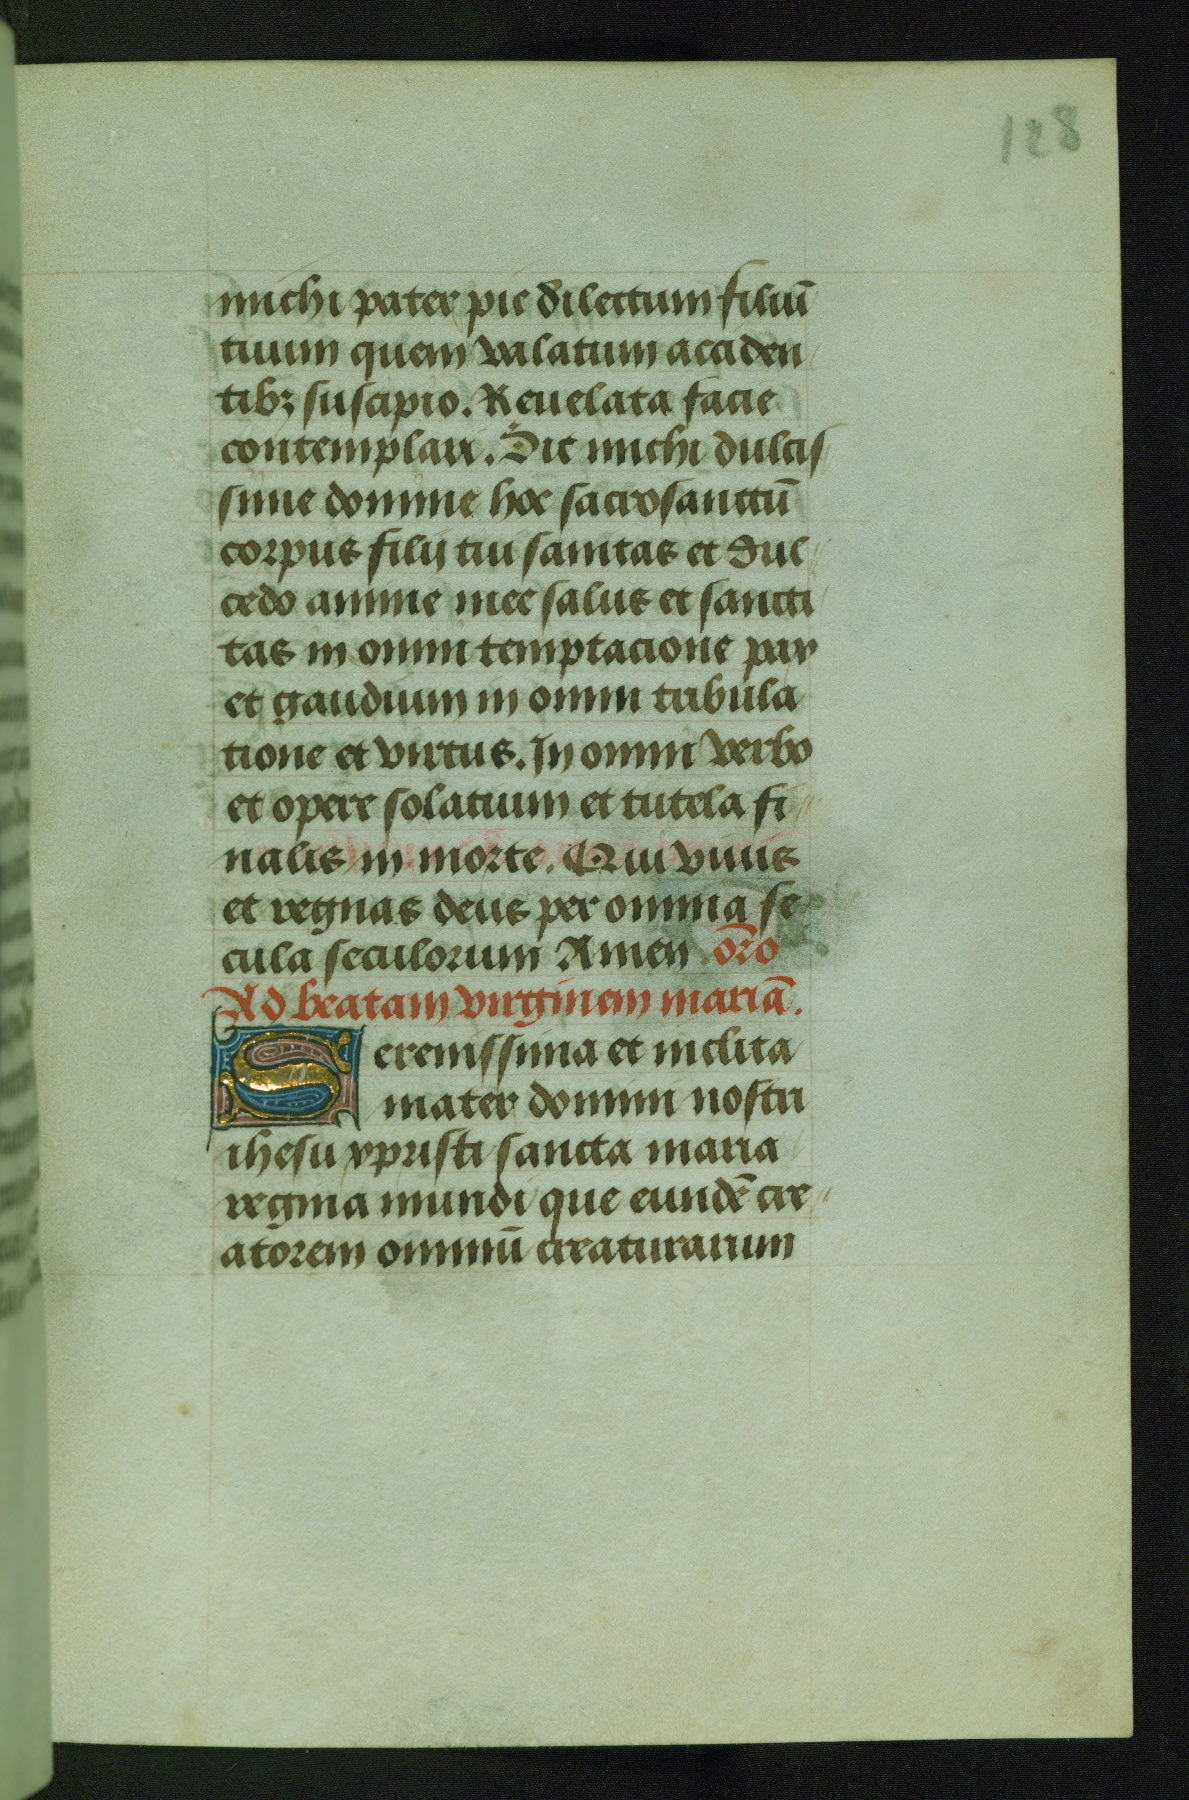 128
michi pater pie dilectum filiū
tuum quem velatum acciden
tibꝫ suscipio. Reuelata facie
contemplari. Sit michi dulcis
sime domine hoc sacrosanctū
corpus filij tui sanitas et dul
cedo anime mee salus et sancti
tas in omni temptacione pax
et gaudium in omni tribula
tione et virtus. In omni verbo
et opere solatium et tutela fi
nalis in morte. Qui viuis
et regnas deus per omnia se
cula seculorum Amen oro̅
Ad beatam virginem mariā.
Serenissima et inclita
mater domini nostri
ihesu xpristi sancta maria
regina mundi que eundē cre
atorem omniū creaturarum